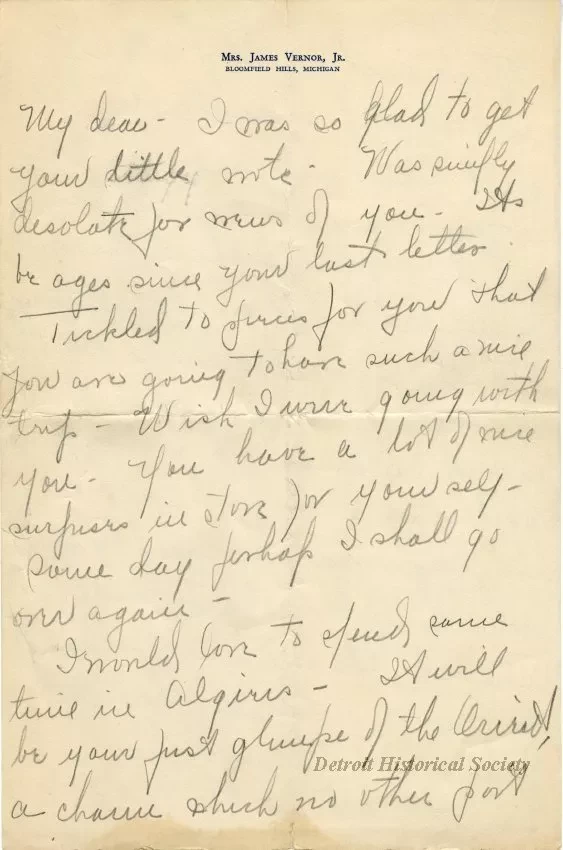 Mrs. James Vernor, Jr.
Bloomfield Hills, Michigan
My dear - I was so glad to get
your little note - Was simply
desolate for news of you - Its
be ages since your last letter
Tickled to pieces for you that
you are going to have such a nice
trip - Wish I were going with
you - You have a lot of nice
surprises in store for yourself -
some day perhaps I shall go
over again -
I would love to spend some
time in Algiers - It will
be your first glimpse of the Orient,
Detroit Historical Society
a charm which no other port